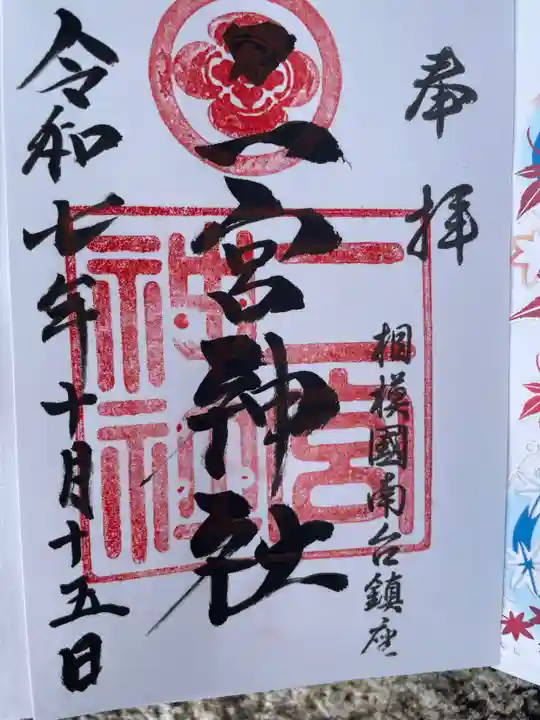 奉拝
相模國南台鎮座
二宮神社
令和七年十月十五日
二宮
神社